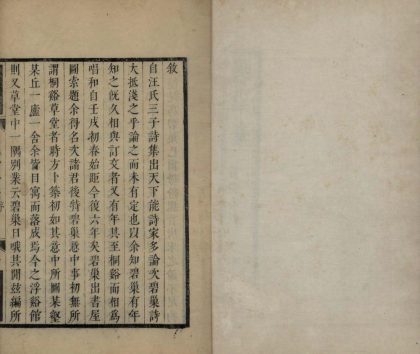 敘
自汪氏三子詩集出天下能詩家多論次碧巢詩
大抵淺之乎論之而未有定也以余知碧巢有年
知之旣久相與訂交者又有年其至桐谿而相爲
唱和自壬戌初春始距今復六年矣碧巢出書屋
圖索題余得名次諸君後特碧巢意中事初無所
謂桐谿草堂者時方卜築初如其意中所圖某壑
某丘一廬一舍余皆目寓而落成焉今之浮谿館
則又草堂中一隅別業云碧巢日哦其間茲編所